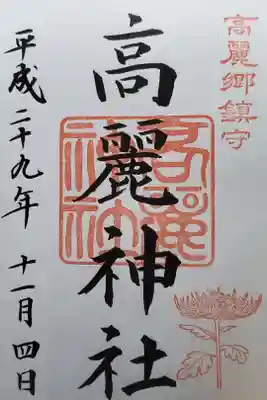 高麗郷鎮守
高麗神社
高麗神社
平成二十九年 十一月四日